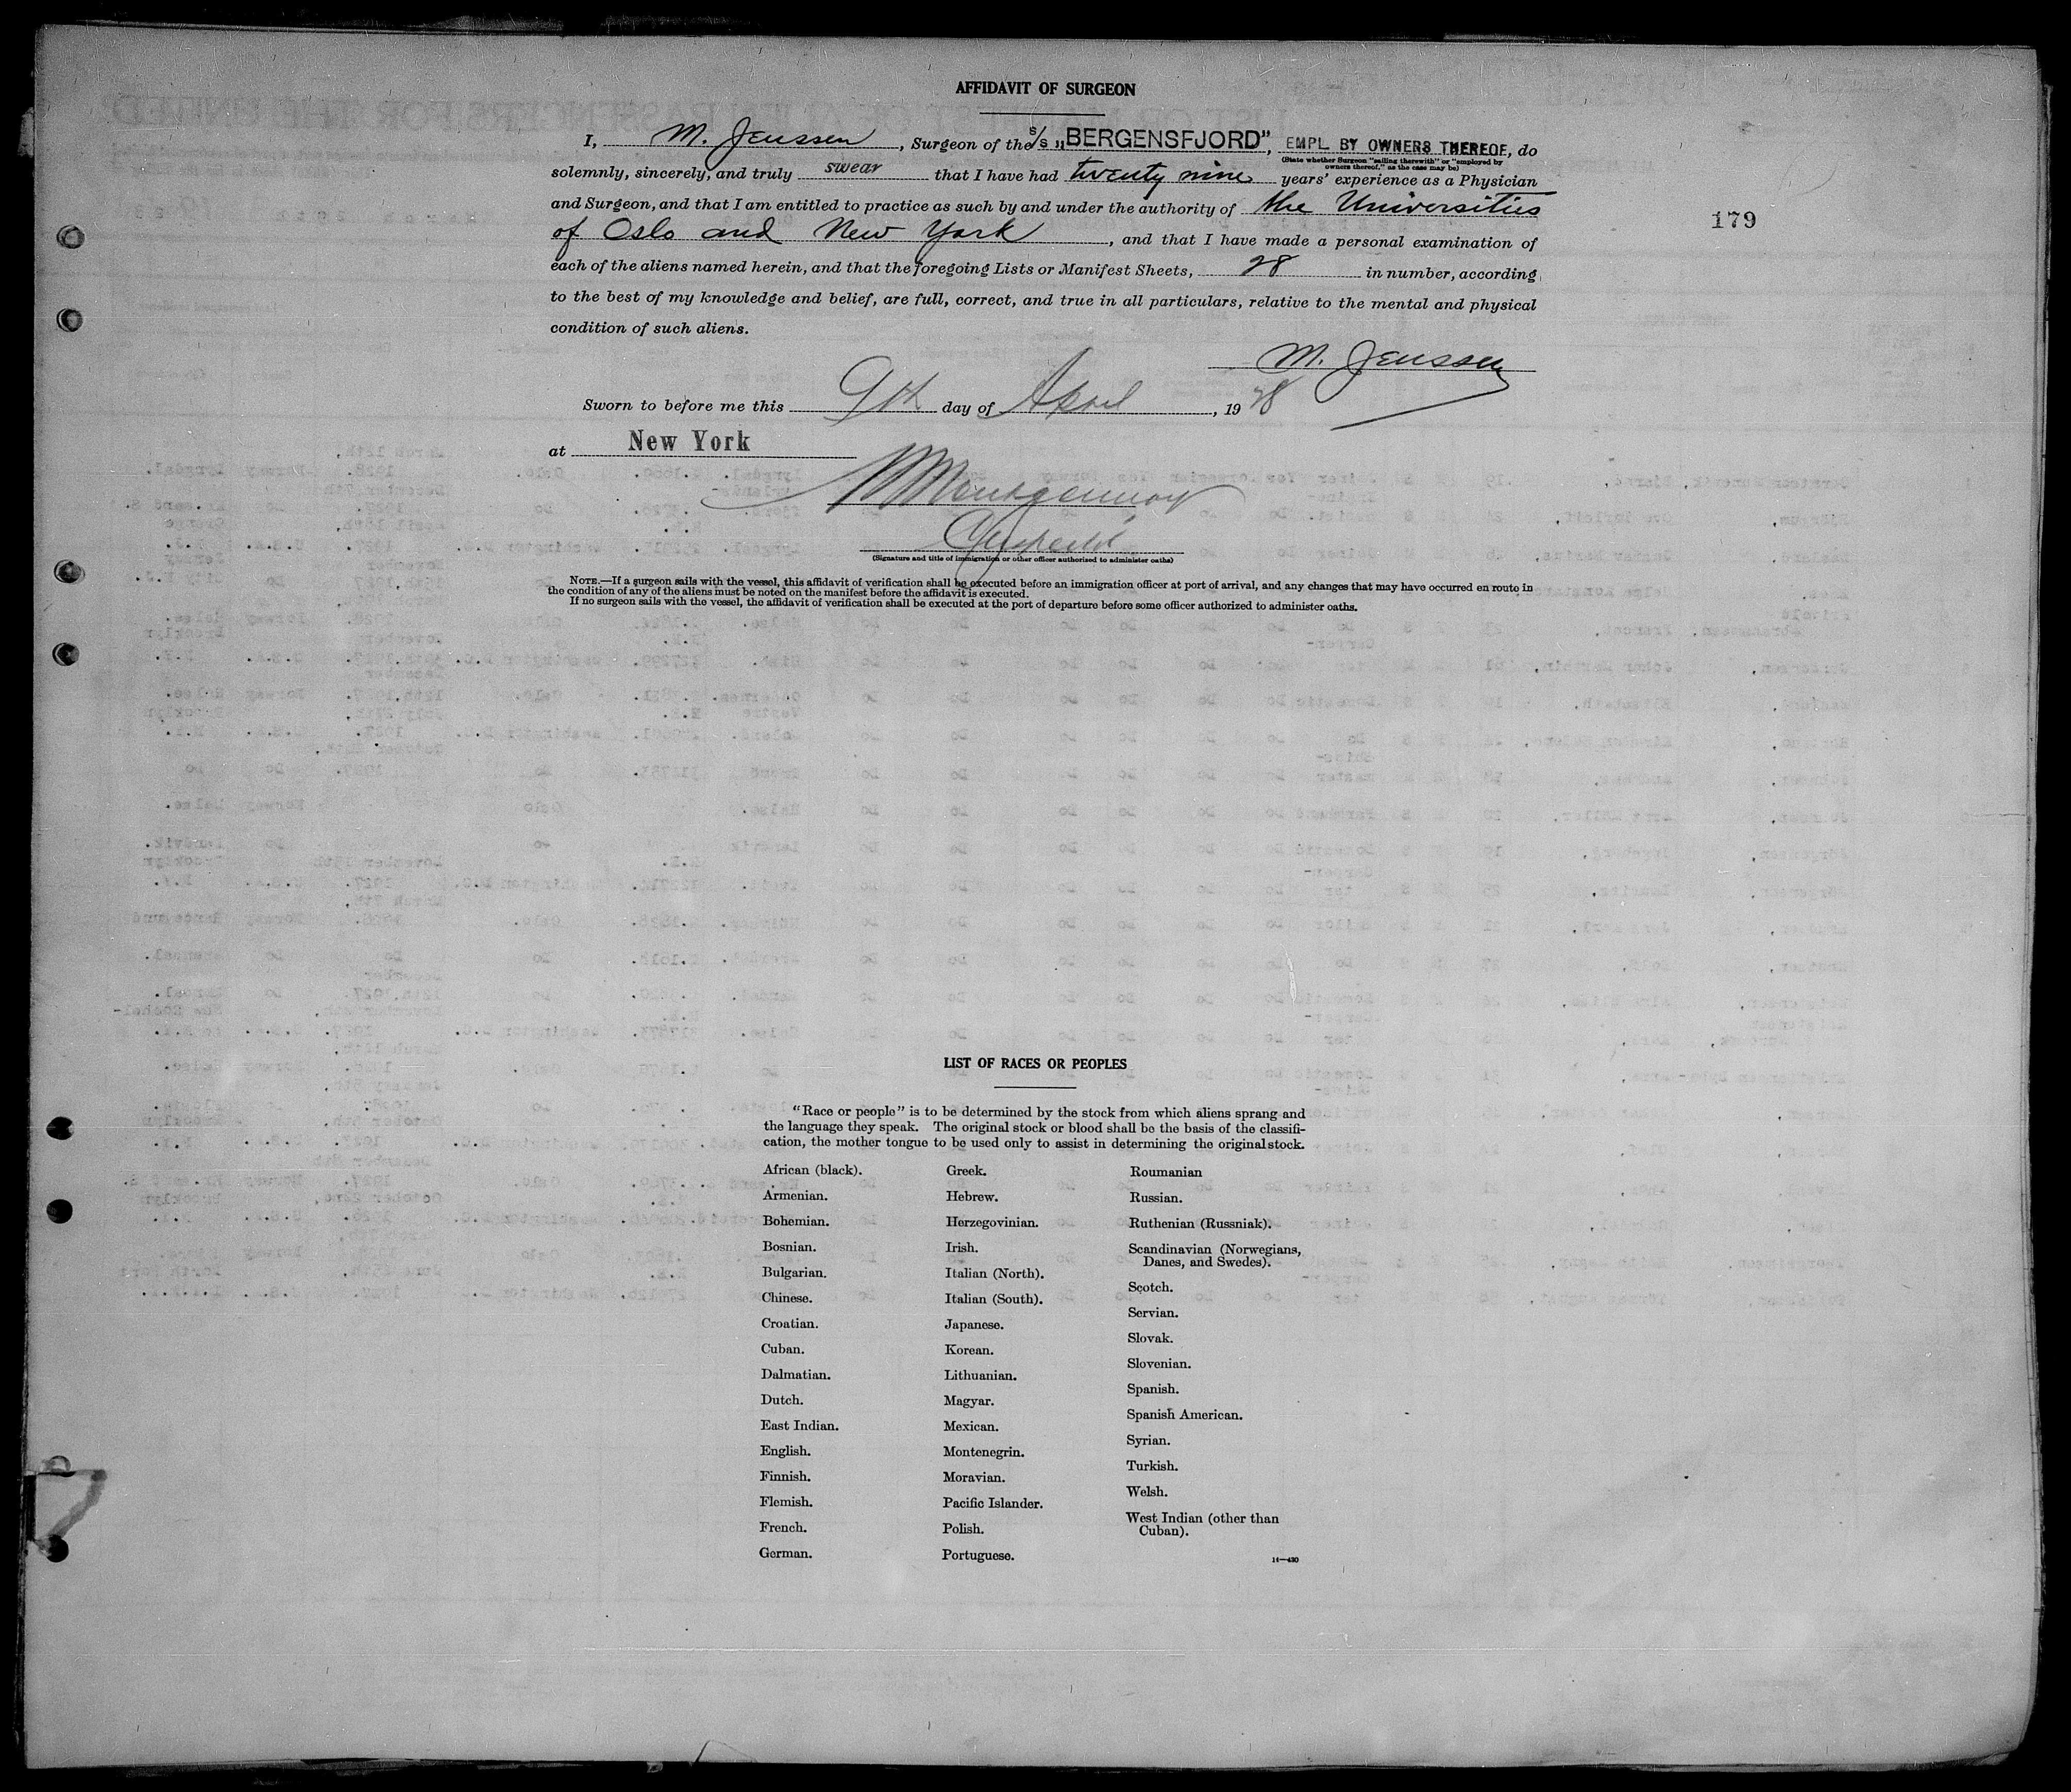 AFFIDAVIT OF SURGEON
I, M. Jenssen, Surgeon of the S/S „BERGENSFJORD”, EMPL. BY OWNERS THEREOF, do
(State whether Surgeon "sailing therewith" or "employed by
owners thereof," as the case may be)
solemnly, sincerely, and truly swear that I have had twenty nine years' experience as a Physician
and Surgeon, and that I am entitled to practice as such by and under the authority of the Universities
of Oslo and New York, and that I have made a personal examination of
179
each of the aliens named herein, and that the foregoing Lists or Manifest Sheets, 28 in number, according
to the best of my knowledge and belief, are full, correct, and true in all particulars, relative to the mental and physical
condition of such aliens.
M. Jenssen
Sworn to before me this 9th day of April, 1928
at New York
Montgomery
(Signature and title of immigration or other officer authorized to administer oaths)
NOTE.—If a surgeon sails with the vessel, this affidavit of verification shall be executed before an immigration officer at port of arrival, and any changes that may have occurred en route in
the condition of any of the aliens must be noted on the manifest before the affidavit is executed.
If no surgeon sails with the vessel, the affidavit of verification shall be executed at the port of departure before some officer authorized to administer oaths.
LIST OF RACES OR PEOPLES
"Race or people" is to be determined by the stock from which aliens sprang and
the language they speak. The original stock or blood shall be the basis of the classifi-
cation, the mother tongue to be used only to assist in determining the original stock.
African (black).
Armenian.
Bohemian.
Bosnian.
Bulgarian.
Chinese.
Croatian.
Cuban.
Dalmatian.
Dutch.
East Indian.
English.
Finnish.
Flemish.
French.
German.
Greek.
Hebrew.
Herzegovinian.
Irish.
Italian (North).
Italian (South).
Japanese.
Korean.
Lithuanian.
Magyar.
Mexican.
Montenegrin.
Moravian.
Pacific Islander.
Polish.
Portuguese.
Roumanian
Russian.
Ruthenian (Russniak).
Scandinavian (Norwegians,
Danes, and Swedes).
Scotch.
Servian.
Slovak.
Slovenian.
Spanish.
Spanish American.
Syrian.
Turkish.
Welsh.
West Indian (other than
Cuban).
14—430